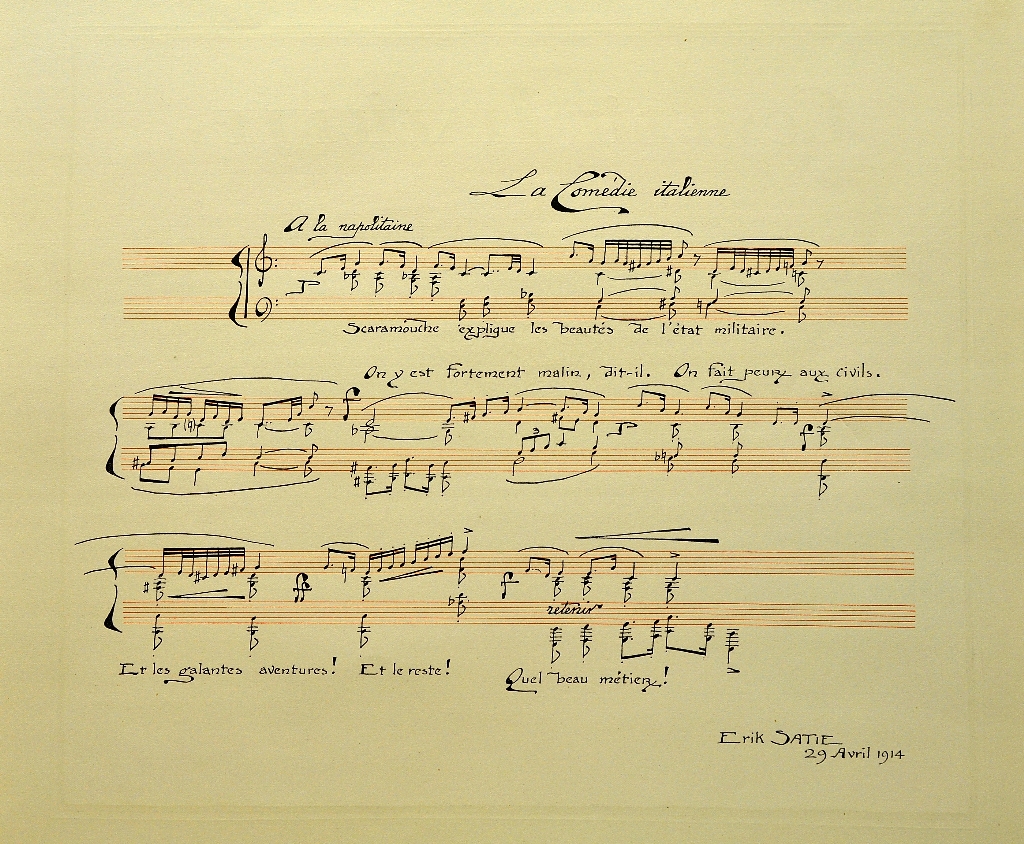 La Comédie italienne
A la napolitaine
Scaramouche explique les beautés de l'état militaire.
On y est fortement malin, dit-il. On fait peur aux civils.
Et les galantes aventures! Et le reste! Quel beau métier!
retenir
Erik SATIE
29 Avril 1914